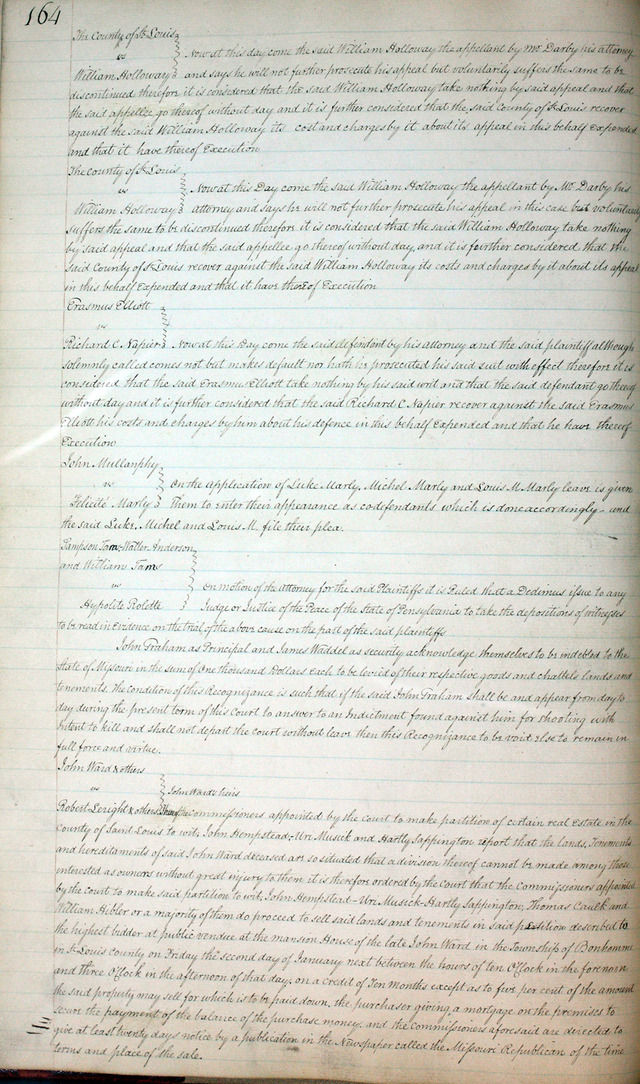 164
The County of St. Louis
vs Now at this day come the said William Holloway the appellant by Mr Darby his attorney
William Holloway and says he will not further prosecute his appeal but voluntarily suffers the same to be
discontinued therefore it is considered that the said William Holloway take nothing by said appeal and that
the said appellee go thereof without day and it is further considered that the said County of St Louis recover
against the said William Holloway its cost and charges by it about its appeal in this behalf expended
and that it have thereof Execution
The County of St Louis
vs Now at this Day come the said William Holloway the appellant by Mr Darby his
William Holloway attorney and says he will not further prosecute his appeal in this case but voluntarily
suffers the same to be discontinued therefore it is considered that the said William Holloway take nothing
by said appeal and that the said appellee go thereof without day, and it is further considered that the
said County of St Louis recover against the said William Holloway its costs and charges by it about its appeal
in this behalf Expended and that it have thereof Execution
Erasmus Elliott
vs
Richard C Napier Now at this Day come the said defendant by his attorney and the said plaintiff although
solemnly called comes not but makes default nor hath he prosecuted his said suit with effect therefore it is
considered that the said Erasmus Elliott take nothing by his said writ and that the said defendant go thereof
without day and it is further considered that the said Richard C Napier recover against the said Erasmus
Elliott his costs and charges by him about his defence in this behalf Expended and that he have thereof
Execution
John Mullanphy
vs On the application of Luke Marly, Michel Marly and Louis M. Marly leave is given
Felicité Marly Them to enter their appearance as codefendants which is done accordingly and
the said Luke, Michel and Louis M. file their plea.
Sampson Tams Walter Anderson
and William Tams
vs On motion of the Attorney for the said Plaintiffs it is Ruled that a Dedimus issue to any
Hypolite Rolette Judge or Justice of the Peace of the State of Pensylvania to take the depositions of witnesses
to be read in Evidence on the trial of the above cause on the part of the said plaintiffs
John Graham as Principal and James Waddel as security acknowledge themselves to be indebted to the
State of Missouri in the sum of One thousand Dollars each to be levied of their respective goods and chattels lands and
tenements. The condition of this Recognizance is such that if the said John Graham shall be and appear from day to
day during the present term of this Court to answer to an Indictment found against him for shooting with
intent to kill and shall not depart the court without leave then this Recognizance to be void Else to remain in
full force and virtue.
John Ward & others
vs John Wards heirs
Robert Leright & others The commissioners appointed by the court to make partition of certain real Estate in the
County of Saint Louis to wit, John Hempstead - Uri Musick and Hartly Sappington report that the lands, Tenements
and hereditaments of said John Ward deceased are so situated that a division thereof cannot be made among those
interested as owners without great injury to them it is therefore ordered by the Court that the Commissioners appointed
by the court to make said partition to wit, John Hempstead - Uri Musick - Hartly Sappington, Thomas Caulk and
William Hibler or a majority of them do proceed to sell said lands and tenements in said petition described to
the highest bidder at public vendue at the mansion House of the late John Ward in the Township of Bonhomme
in St Louis County on Friday the second day of January next between the hours of ten O'Clock in the forenoon
and three O'Clock in the afternoon of that day, on a credit of Ten Months except as to five per cent of the amount
the said property may sell for which is to be paid down, the purchaser giving a mortgage on the premises to
secure the payment of the balance of the purchase money, and the commissioners aforesaid are directed to
give at least twenty days notice by a publication in the Newspaper called the Missouri Republican of the time
terms and place of the sale.